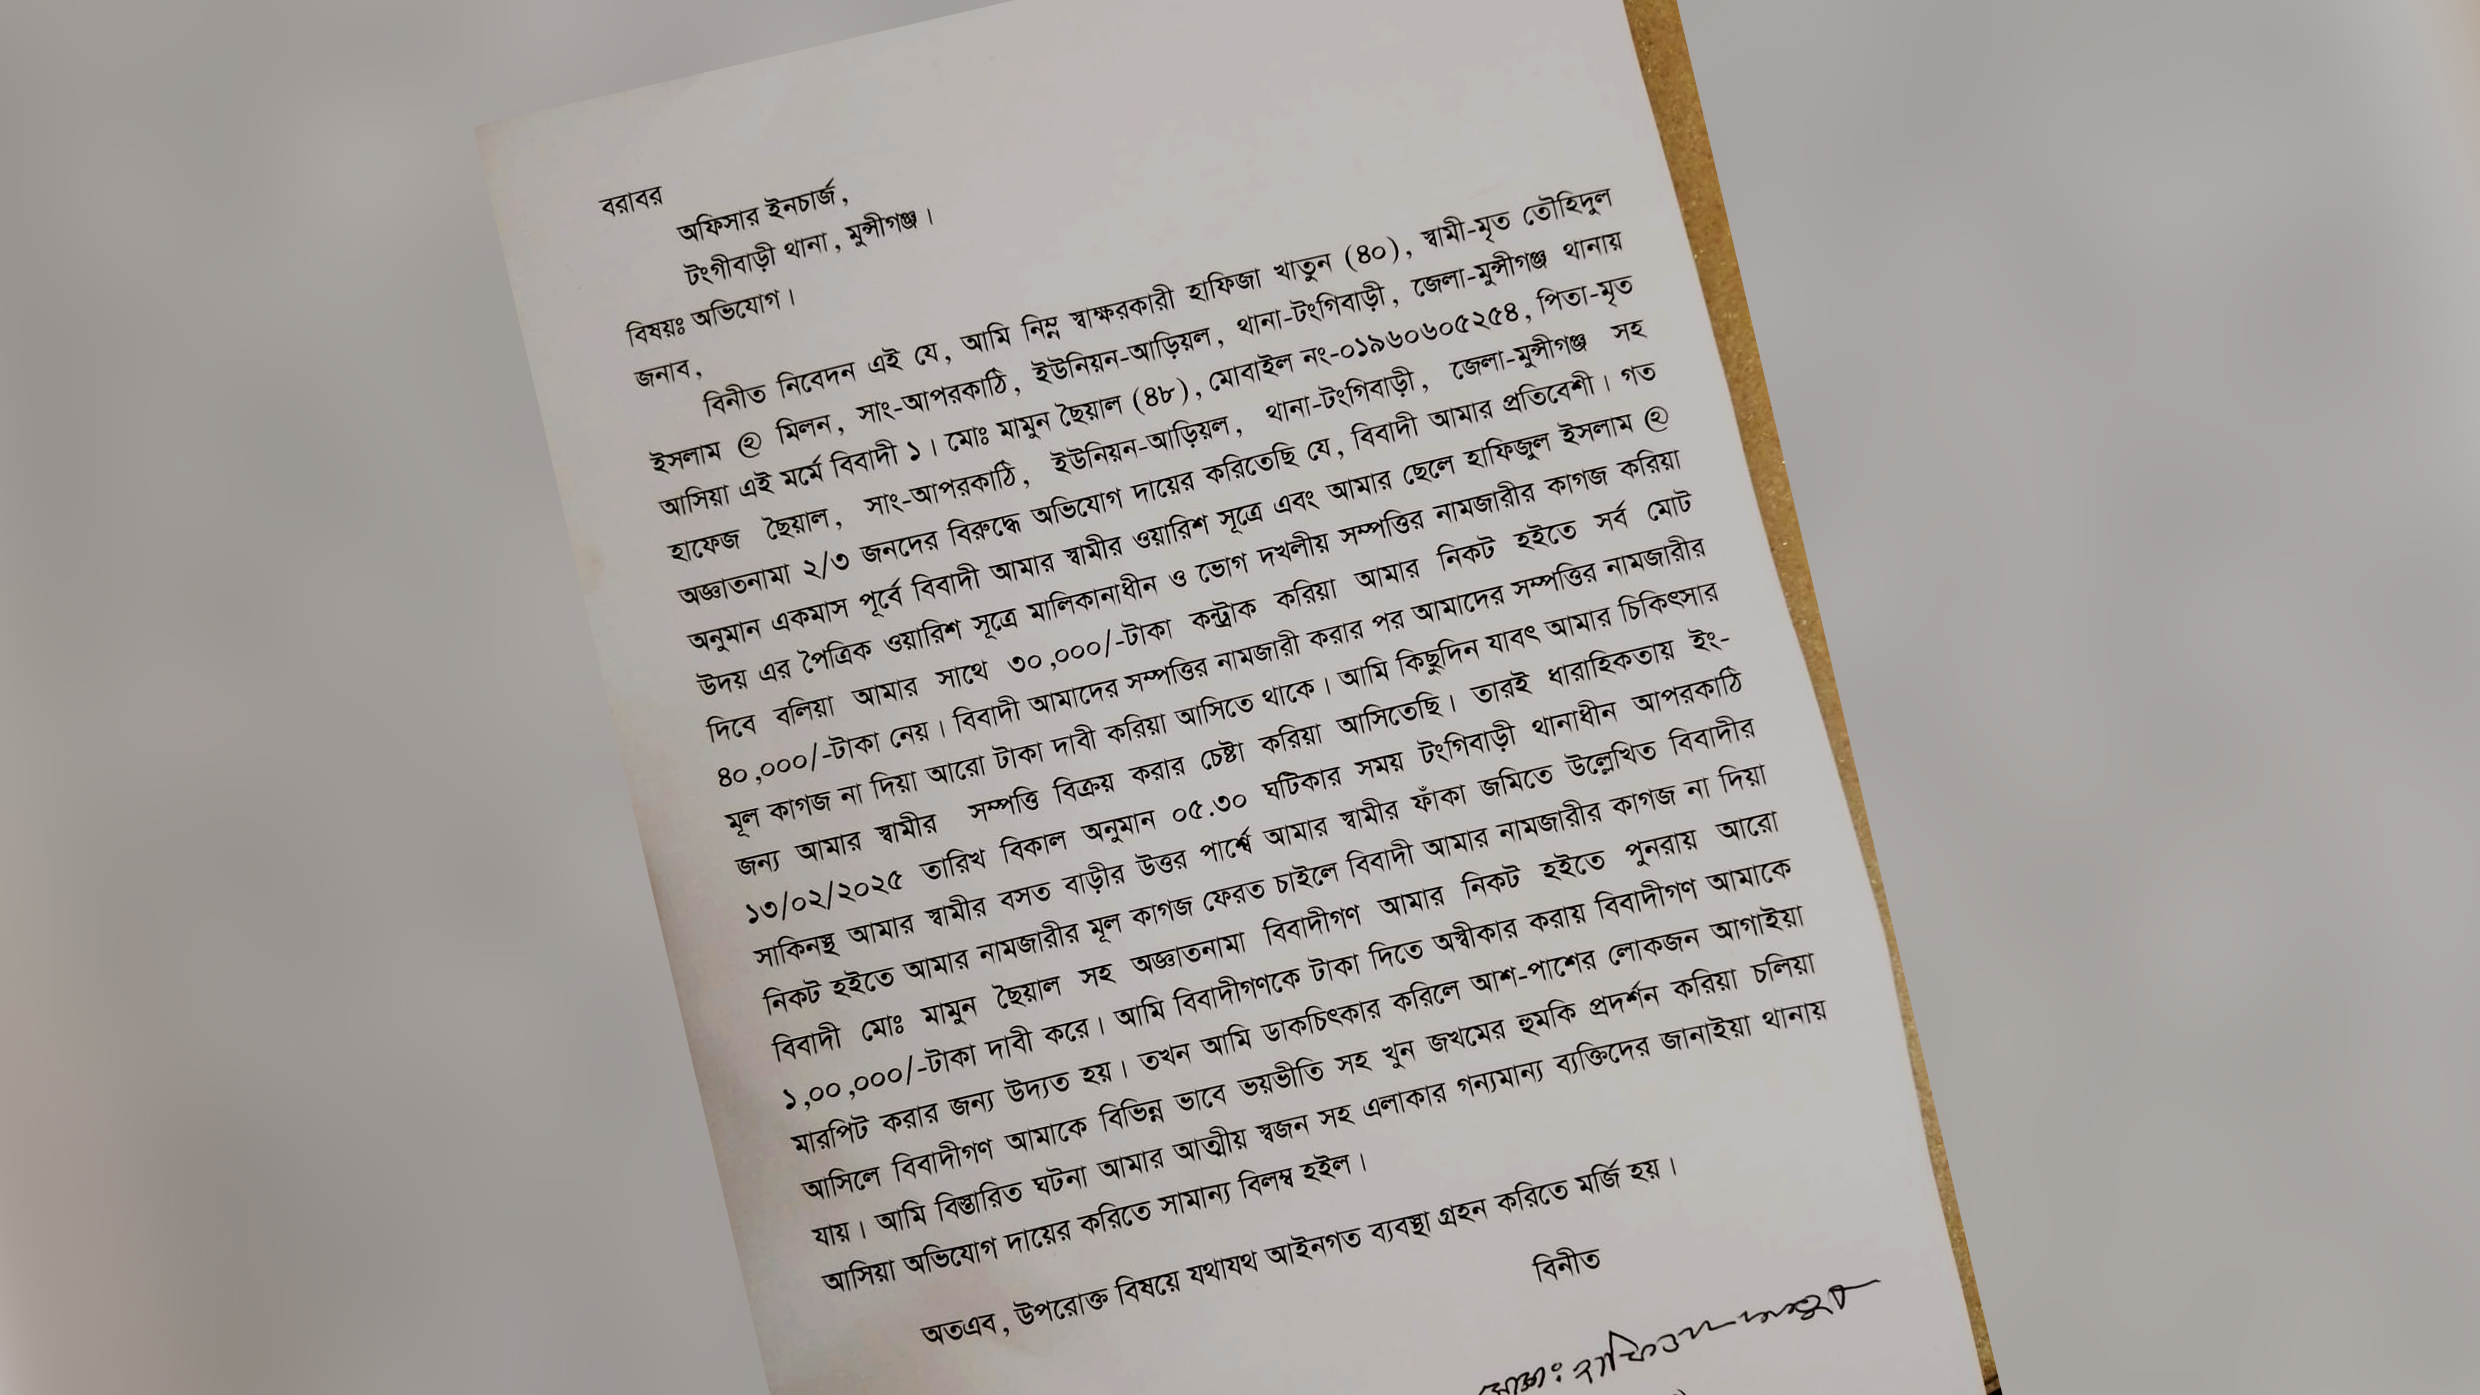 বরাবর
অফিসার ইনচার্জ,
টংগীবাড়ী থানা, মুন্সীগঞ্জ।
বিষয়ঃ অভিযোগ।
জনাব,
বিনীত নিবেদন এই যে, আমি নিম্ন স্বাক্ষরকারী হাফিজা খাতুন (৪০), স্বামী-মৃত তৌহিদুল
ইসলাম @ মিলন, সাং-আপরকাঠি, ইউনিয়ন-আড়িয়ল, থানা-টংগিবাড়ী, জেলা-মুন্সীগঞ্জ থানায়
আসিয়া এই মর্মে বিবাদী ১। মোঃ মামুন ছৈয়াল (৪৮), মোবাইল নং-০১৯৬০৬০৫২৫৪, পিতা-মৃত
হাফেজ ছৈয়াল, সাং-আপরকাঠি, ইউনিয়ন-আড়িয়ল, থানা-টংগিবাড়ী, জেলা-মুন্সীগঞ্জ সহ
অজ্ঞাতনামা ২/৩ জনদের বিরুদ্ধে অভিযোগ দায়ের করিতেছি যে, বিবাদী আমার প্রতিবেশী। গত
অনুমান একমাস পূর্বে বিবাদী আমার স্বামীর ওয়ারিশ সূত্রে এবং আমার ছেলে হাফিজুল ইসলাম @
উদয় এর পৈত্রিক ওয়ারিশ সূত্রে মালিকানাধীন ও ভোগ দখলীয় সম্পত্তির নামজারীর কাগজ করিয়া
দিবে বলিয়া আমার সাথে ৩০,০০০/-টাকা কন্ট্রাক করিয়া আমার নিকট হইতে সর্ব মোট
৪০,০০০/-টাকা নেয়। বিবাদী আমাদের সম্পত্তির নামজারী করার পর আমাদের সম্পত্তির নামজারীর
মূল কাগজ না দিয়া আরো টাকা দাবী করিয়া আসিতে থাকে। আমি কিছুদিন যাবৎ আমার চিকিৎসার
জন্য আমার স্বামীর সম্পত্তি বিক্রয় করার চেষ্টা করিয়া আসিতেছি। তারই ধারাহিকতায় ইং-
১৩/০২/২০২৫ তারিখ বিকাল অনুমান ০৫.৩০ ঘটিকার সময় টংগিবাড়ী থানাধীন আপরকাঠি
সাকিনস্থ আমার স্বামীর বসত বাড়ীর উত্তর পার্শ্বে আমার স্বামীর ফাঁকা জমিতে উল্লেখিত বিবাদীর
নিকট হইতে আমার নামজারীর মূল কাগজ ফেরত চাইলে বিবাদী আমার নামজারীর কাগজ না দিয়া
বিবাদী মোঃ মামুন ছৈয়াল সহ অজ্ঞাতনামা বিবাদীগণ আমার নিকট হইতে পুনরায় আরো
১,০০,০০০/-টাকা দাবী করে। আমি বিবাদীগণকে টাকা দিতে অস্বীকার করায় বিবাদীগণ আমাকে
মারপিট করার জন্য উদ্যত হয়। তখন আমি ডাকচিৎকার করিলে আশ-পাশের লোকজন আগাইয়া
আসিলে বিবাদীগণ আমাকে বিভিন্ন ভাবে ভয়ভীতি সহ খুন জখমের হুমকি প্রদর্শন করিয়া চলিয়া
যায়। আমি বিস্তারিত ঘটনা আমার আত্মীয় স্বজন সহ এলাকার গন্যমান্য ব্যক্তিদের জানাইয়া থানায়
আসিয়া অভিযোগ দায়ের করিতে সামান্য বিলম্ব হইল।
অতএব, উপরোক্ত বিষয়ে যথাযথ আইনগত ব্যবস্থা গ্রহন করিতে মর্জি হয়।
বিনীত